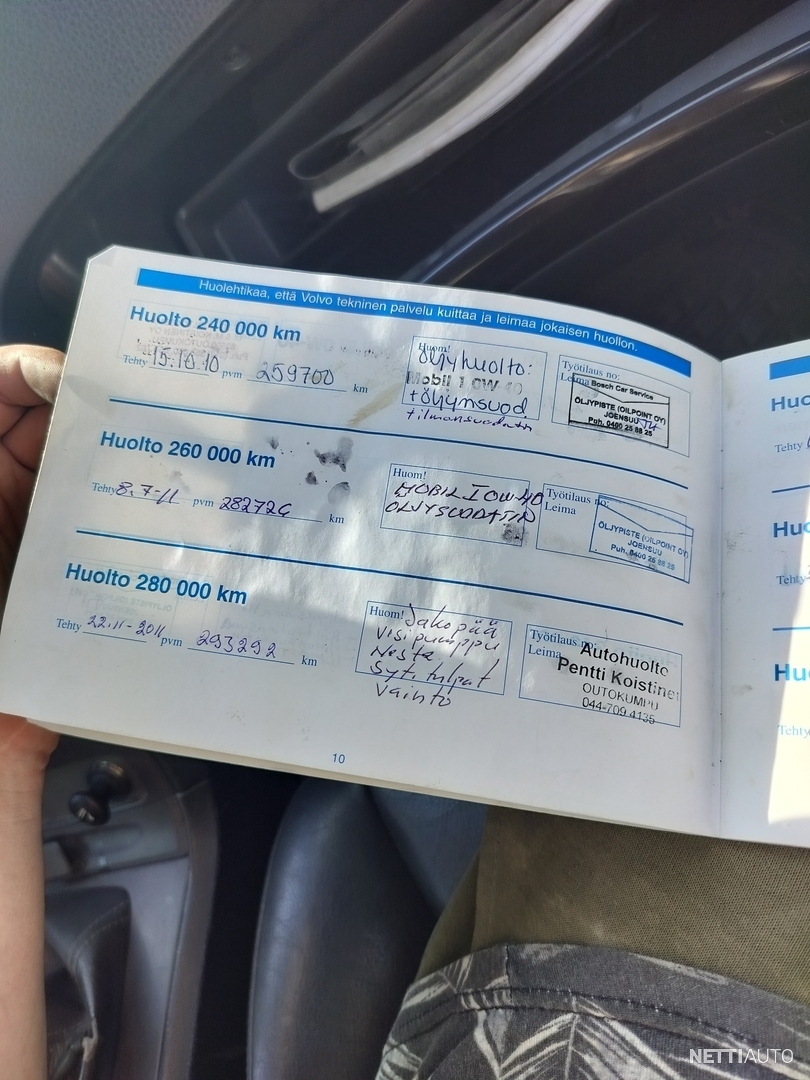 Huolehtikaa, että Volvo tekninen palvelu kuittaa ja leimaa jokaisen huollon.
Huolto 240 000 km
Tehty 15.10.10 pvm 259700 km
Huom!
Öljyhuolto:
Mobil 1 0W-40
+öljynsuod
+ilmansuodatin
Työtilaus no:
Leima
Bosch Car Service
ÖLJYPISTE (OILPOINT OY)
JOENSUU
Puh. 0400 25 88 25
Huolto 260 000 km
Tehty 8.7-11 pvm 282726 km
Huom!
MOBIL 1 0W-40
ÖLJYSUODATIN
Työtilaus no:
Leima
ÖLJYPISTE (OILPOINT OY)
JOENSUU
Puh. 0400 25 88 25
Huolto 280 000 km
Tehty 22.11-2011 pvm 293292 km
Huom! Jakopää
Vesipumppu
Neste
Sytytulpat
Vaihto
Työtilaus no:
Leima
Autohuolto
Pentti Koistinen
OUTOKUMPU
044-709 4135
10
Tehty
Tehty
Tehty
NETTIAUTO